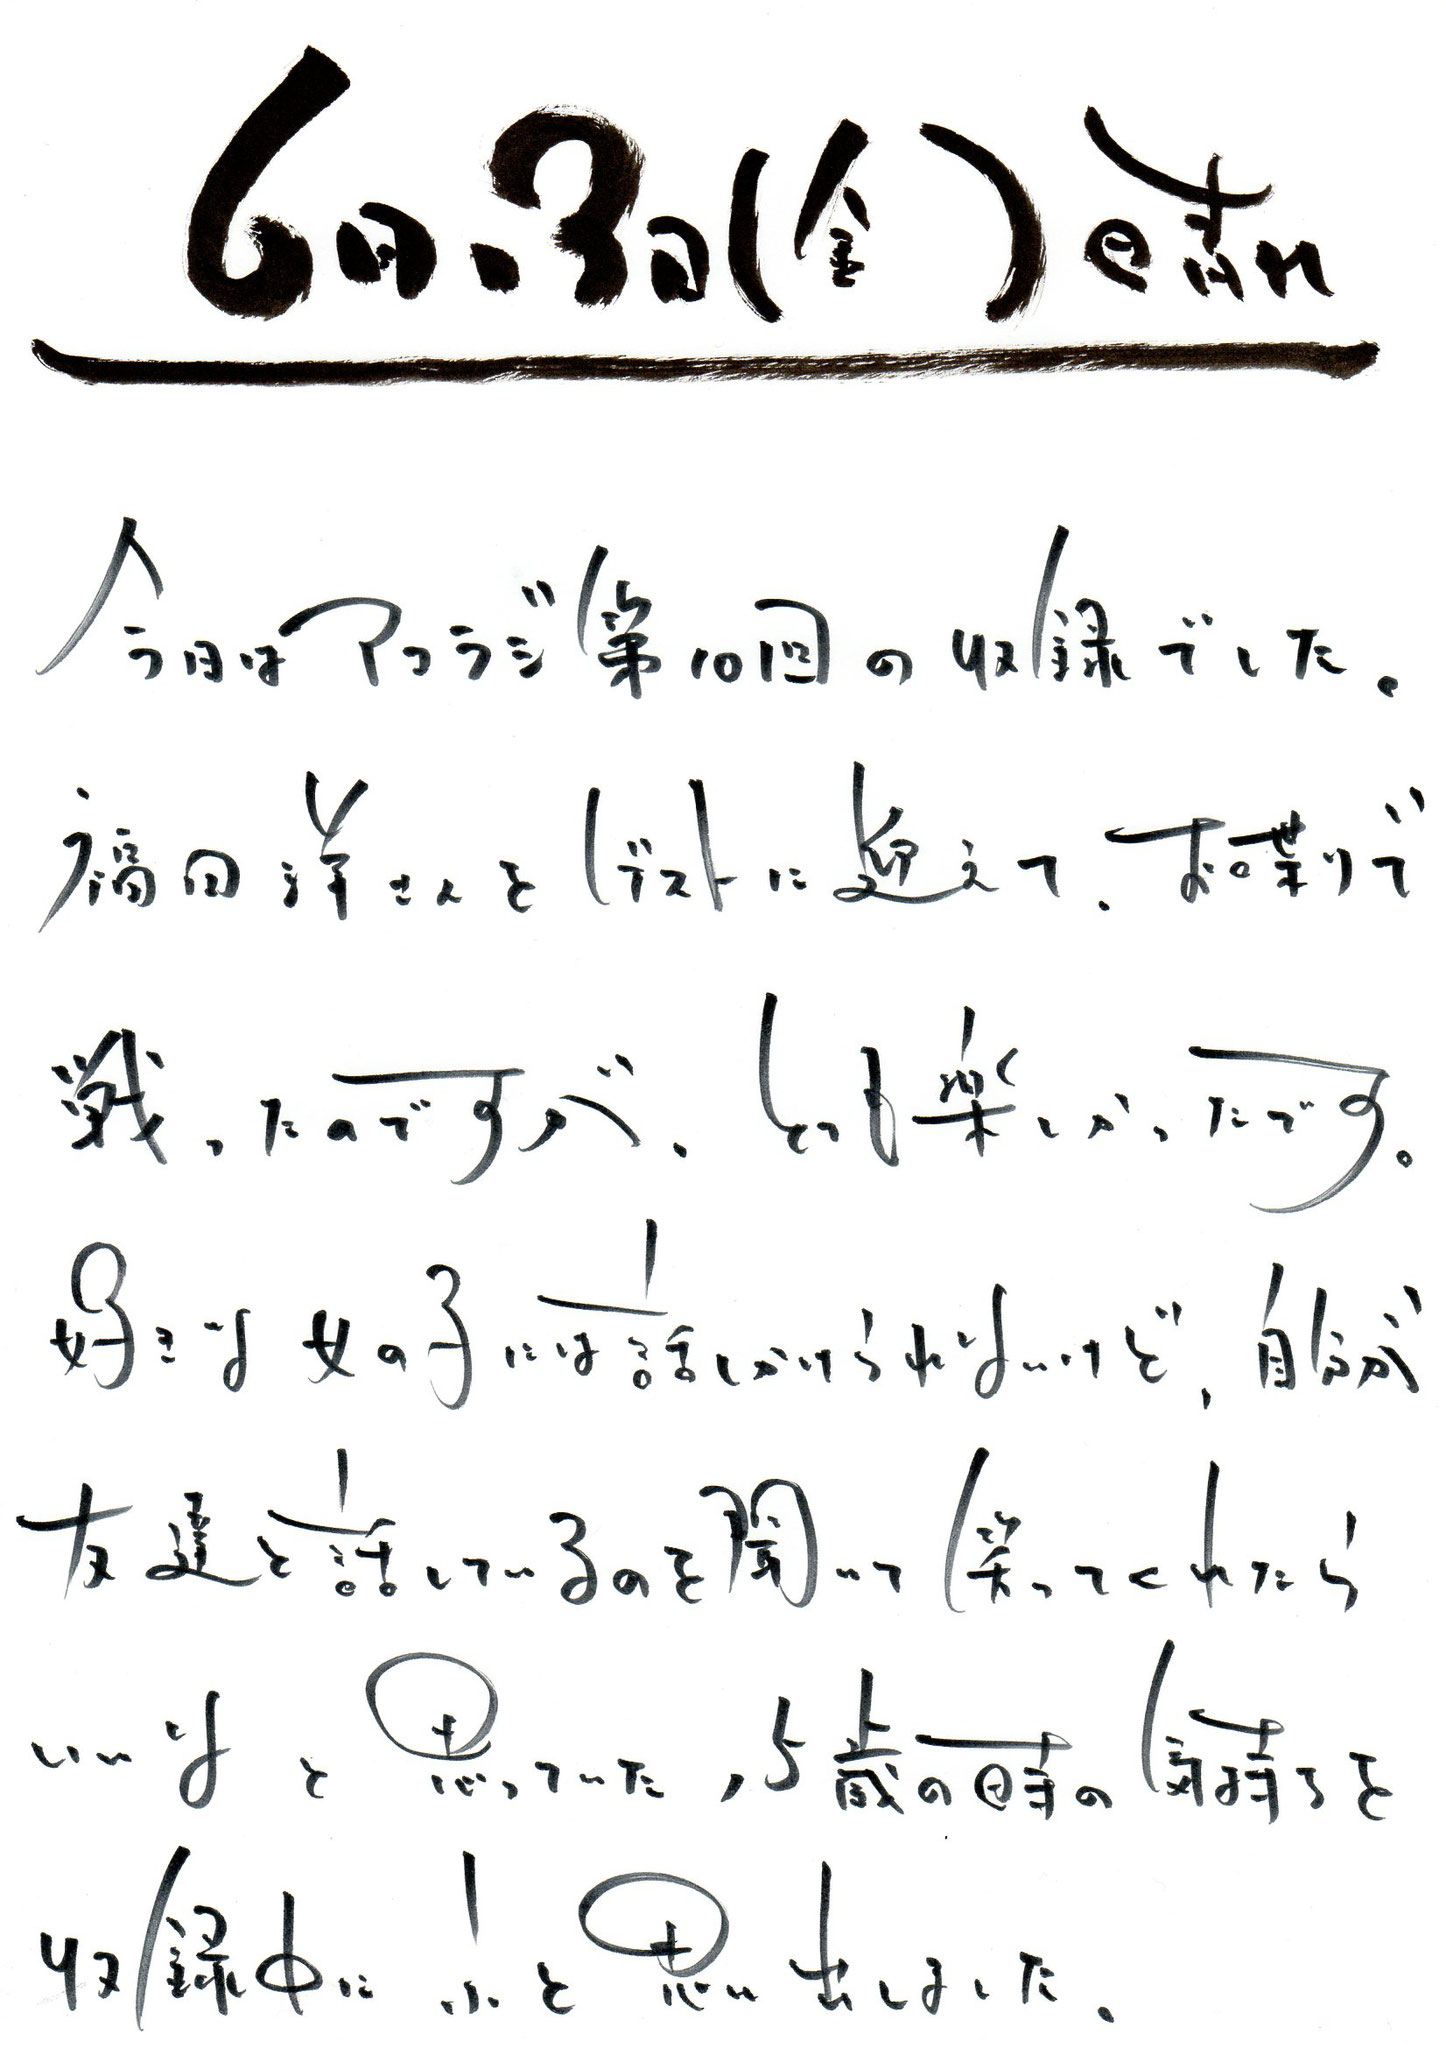 6月.3日(金)晴れ
今日はアコラジ第10回の収録でした。
福田洋さんをゲストに迎えて、お喋りで
戦ったのですが、とても楽しかったです。
好きな女の子には話しかけられないけど、自分が
友達と話しているのを聞いて笑ってくれたら
いいなと思っていた15歳の時の気持ちを
収録中にふと思い出しました。